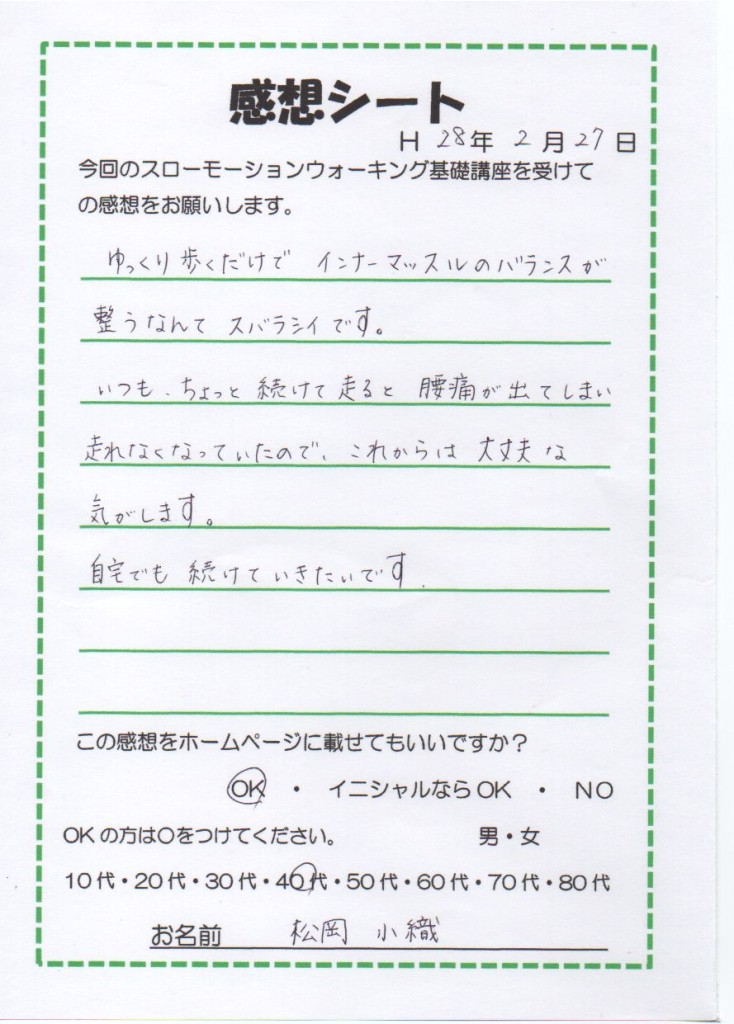 感想シート
H 28年 2月27日
今回のスローモーションウォーキング基礎講座を受けて
の感想をお願いします。
ゆっくり歩くだけで インナーマッスルのバランスが
整うなんて スバラシイです。
いつも、ちょっと 続けて走ると 腰痛が出てしまい
走れなくなっていたので、これからは 大丈夫な
気がします。
自宅でも 続けていきたいです.
この感想をホームページに載せてもいいですか？
OK ・ イニシャルなら OK ・ NO
OK の方は〇をつけてください。 男・女
10代・20代・30代・40代・50代・60代・70代・80代
お名前 松岡 小織